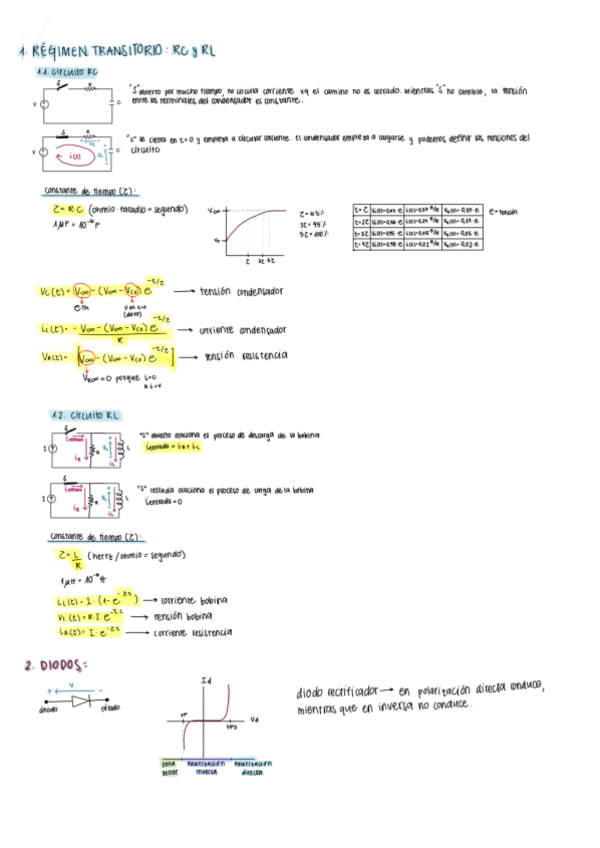 1. RÉGIMEN TRANSITORIO: RC y RL
1.1. CIRCUITO RC
"S" abierto por mucho tiempo, no circula corriente xq el camino no es cerrado. Mientras "S" no cambie, la tensión
entre las terminales del condensador es constante.
"S" se cierra en t=0 y empieza a circular corriente. El condensador empieza a cargarse y podemos definir las tensiones del
circuito
Constante de tiempo (Z):
Z = R·C (ohmio·faradio = segundo)
V∞
Z = 63%
3Z = 95%
5Z = 100%
e = tensión
Vc(t) = V∞ - (V∞ - Vc0) e^-t/Z → tensión condensador
eTh
V en t=0
ic(t) = - V∞ - (V∞ - Vc0) e^-t/Z / R → corriente condensador
VR(t) = [V∞ - (V∞ - Vc0) e^-t/Z] → tensión resistencia
VR∞ = 0 porque i=0
1.2. CIRCUITO RL
"S" abierto ocasiona el proceso de descarga de la bobina
ientrada = iR + iL
"S" cerrada ocasiona el proceso de carga de la bobina
ientrada = 0
Constante de tiempo (Z):
Z = L/R (hertz/ohmio = segundo)
iL(t) = I·(1-e) → corriente bobina
VL(t) = R·I e → tensión bobina
iR(t) = I·e → corriente resistencia
2. DIODOS:
+ V -
ánodo
cátodo
Id
Vd
zona
zener
polarización
inversa
polarización
directa
diodo rectificador → en polarización directa conduce,
mientras que en inversa no conduce.